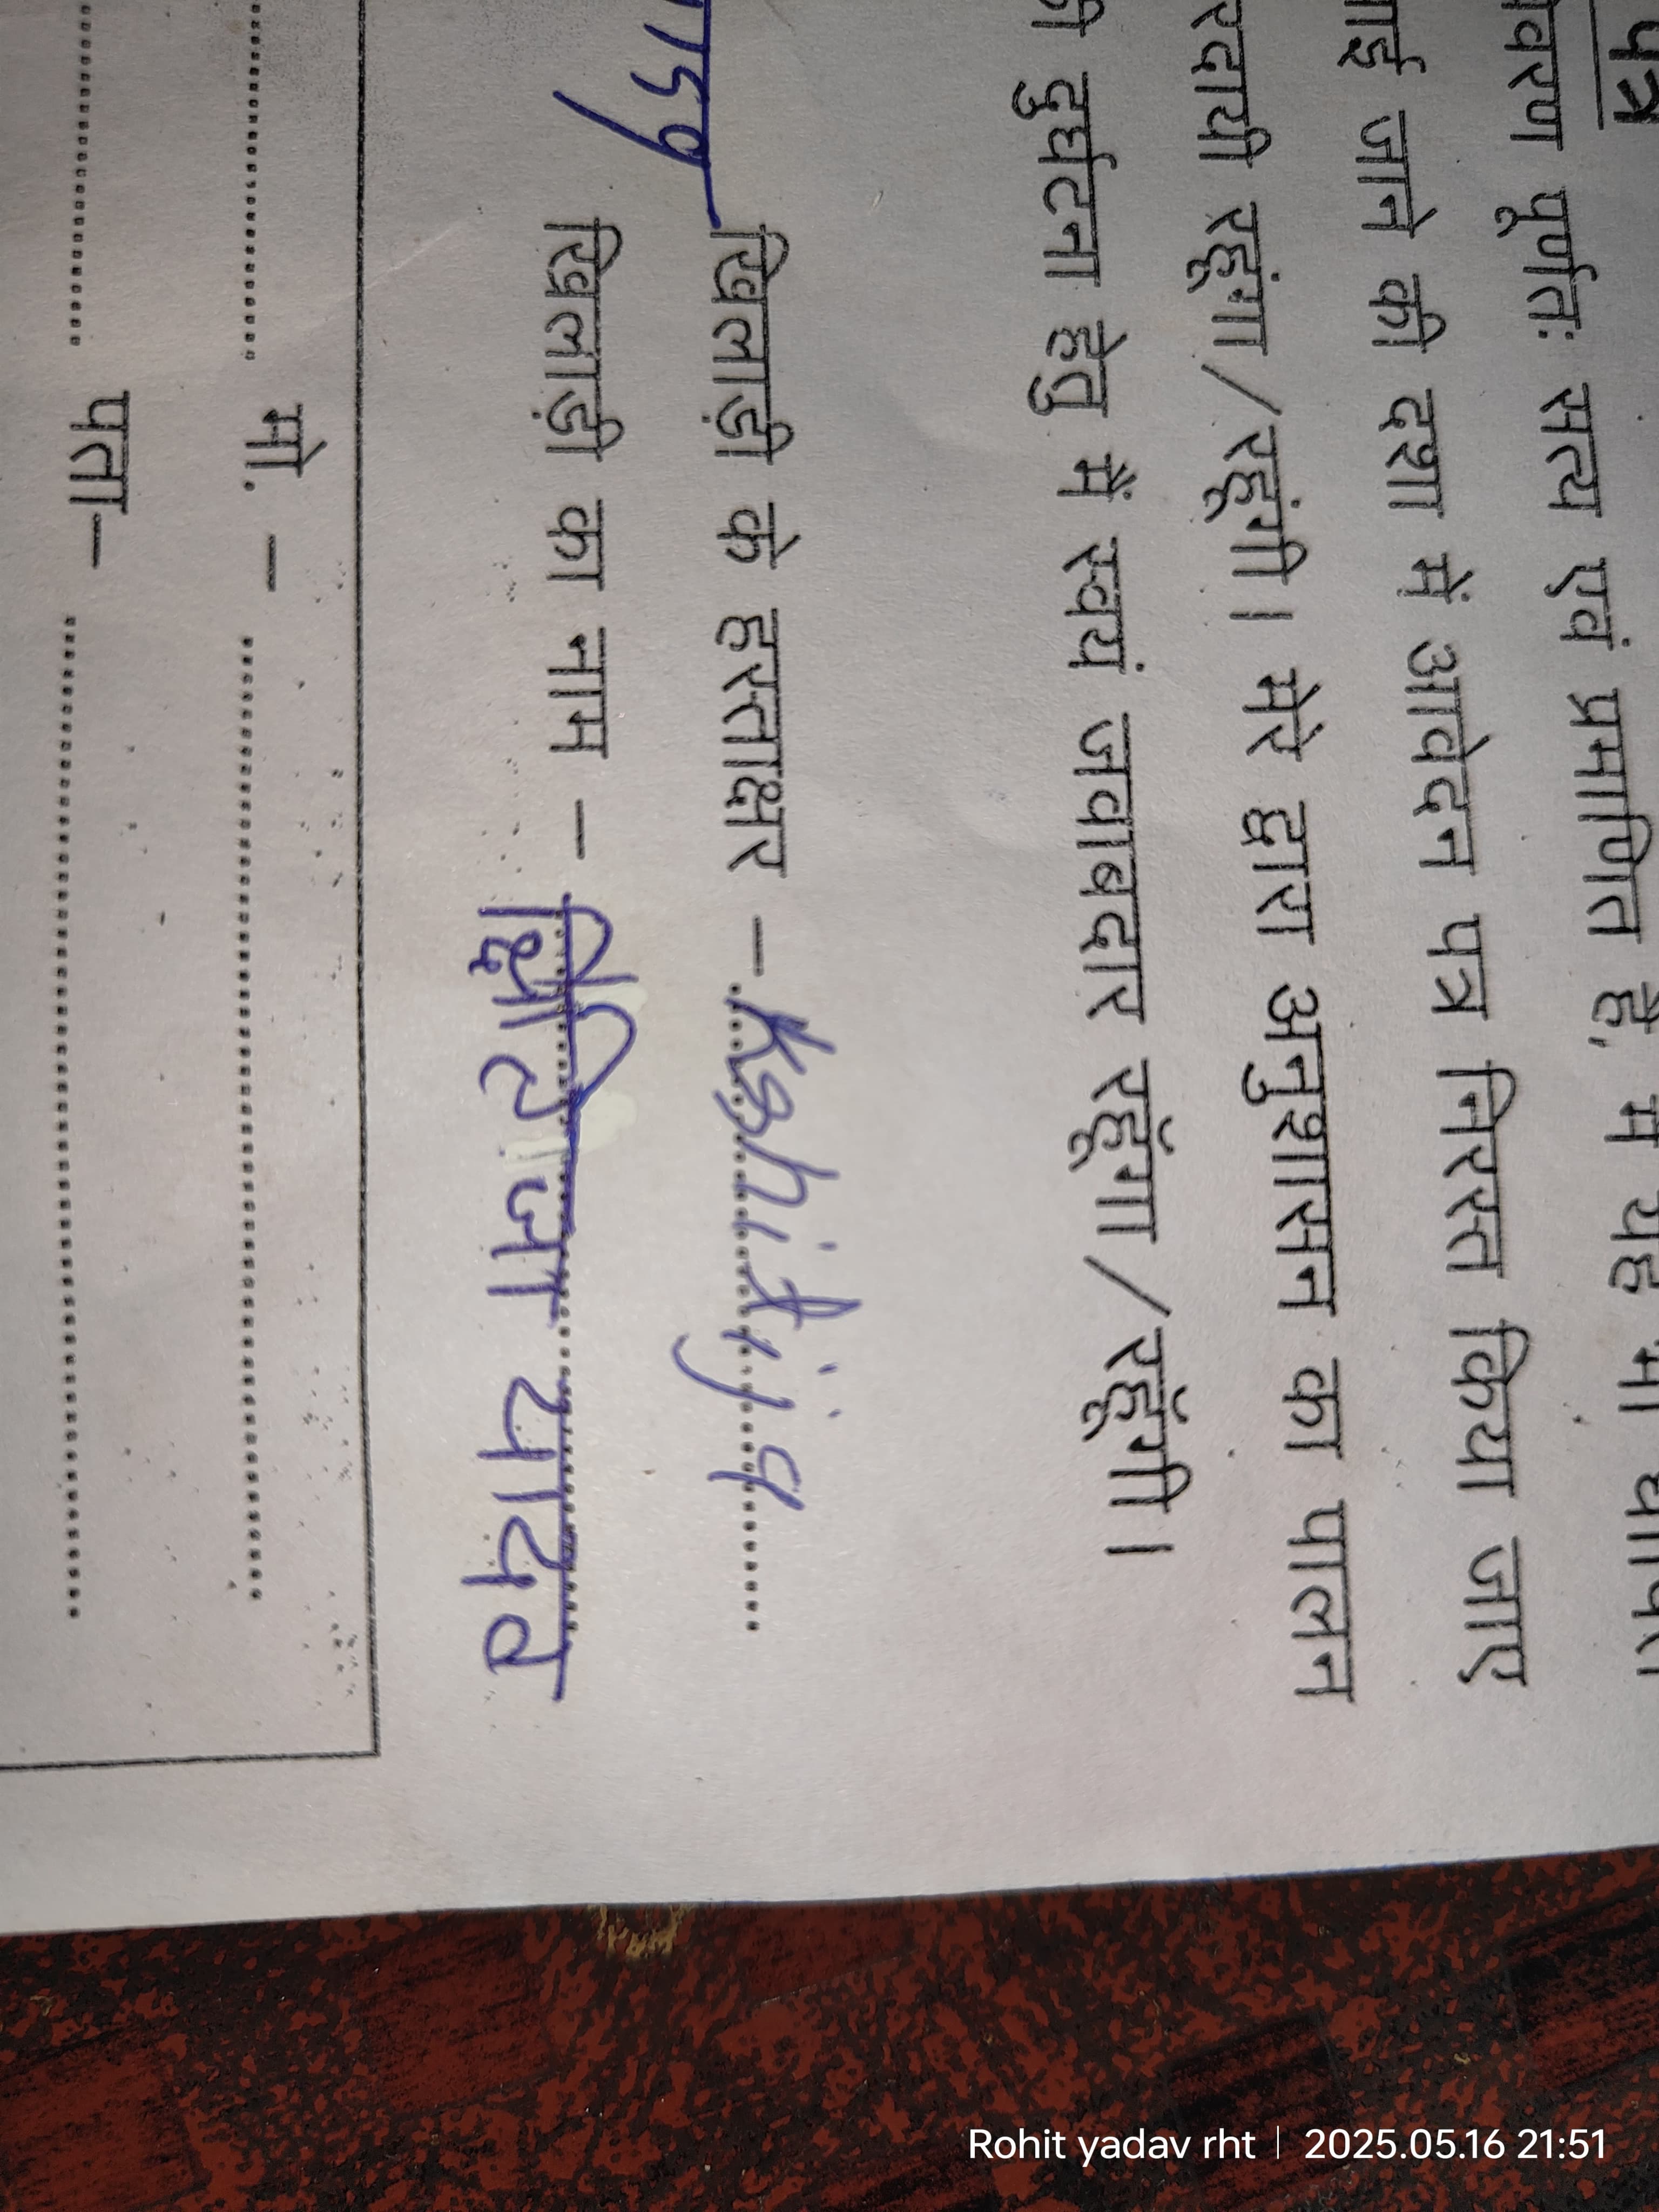 पत्र
पूर्णतः सत्य एवं प्रमाणित है,
जाने की दशा में आवेदन पत्र निरस्त किया जाए
रहूंगा/रहूंगी। मेरे द्वारा अनुशासन का पालन
दुर्घटना हेतु मैं स्वयं जवाबदार रहूंगा/रहूंगी।
खिलाड़ी के हस्ताक्षर – Kshitija
खिलाड़ी का नाम – क्षितिजा यादव
मो. –
पता–
Rohit yadav rht | 2025.05.16 21:51